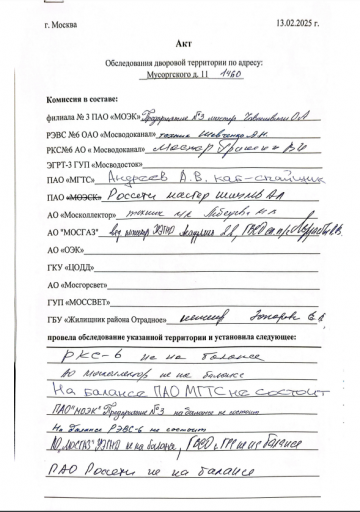 г. Москва 13.02.2025 г.
Акт
Обследования дворовой территории по адресу:
Мусоргского д. 11 1460
Комиссия в составе:
филиала № 3 ПАО «МОЭК» Предприятие №3 мастер О.А
РЭВС №6 ОАО «Мосводоканал» техник Шевченко Я.Н.
РКС№6 АО « Мосводоканал» Мастер Гришенко В.И
ЭГРТ-3 ГУП «Мосводосток»
ПАО «МГТС» Андреев А.В. каб-спайщик
ПАО «МОЭСК» Россети мастер А.А
АО «Москоллектор» техник
АО "МОСГАЗ" инженер
АО «ОЭК»
ГКУ «ЦОДД»
АО «Мосгорсвет»
ГУП «МОССВЕТ»
ГБУ «Жилищник района Отрадное» инженер
провела обследование указанной территории и установила следующее:
РКС-6 не на балансе
АО Москоллектор не на балансе
На балансе ПАО МГТС не состоит
ПАО "МОЭК" Предприятие №3 на балансе не состоит
На балансе РЭВС-6 не состоит
АО "МОСГАЗ" не на балансе, не на балансе
ПАО Россети не на балансе